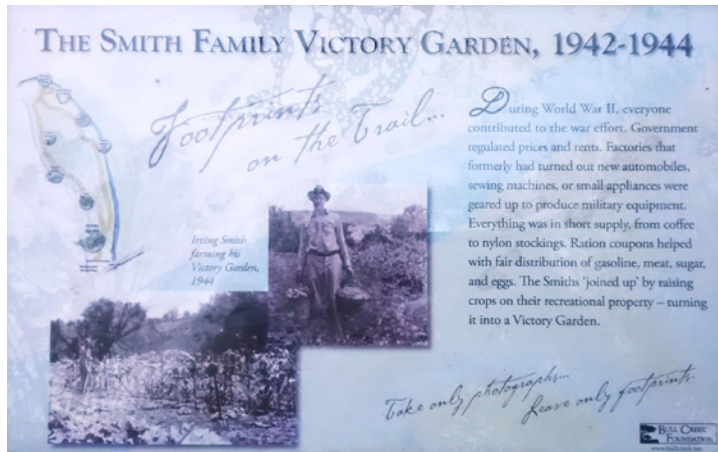 THE SMITH FAMILY VICTORY GARDEN, 1942-1944
Footprints
on the Trail...
During World War II, everyone
contributed to the war effort. Government
regulated prices and rents. Factories that
formerly had turned out new automobiles,
sewing machines, or small appliances were
geared up to produce military equipment.
Everything was in short supply, from coffee
to nylon stockings. Ration coupons helped
with fair distribution of gasoline, meat, sugar,
and eggs. The Smiths ‘joined up’ by raising
crops on their recreational property – turning
it into a Victory Garden.
Irving Smith
farming his
Victory Garden,
1944
Take only photographs...
Leave only footprints.
BULL CREEK
FOUNDATION